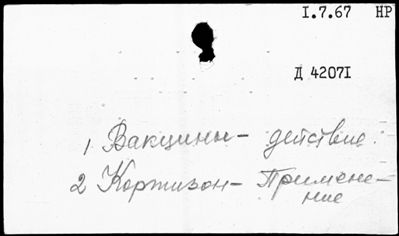 I.7.67 НР
Д 4207I
1 Вакцины – действие.
2 Кортизон – Примене-
ние